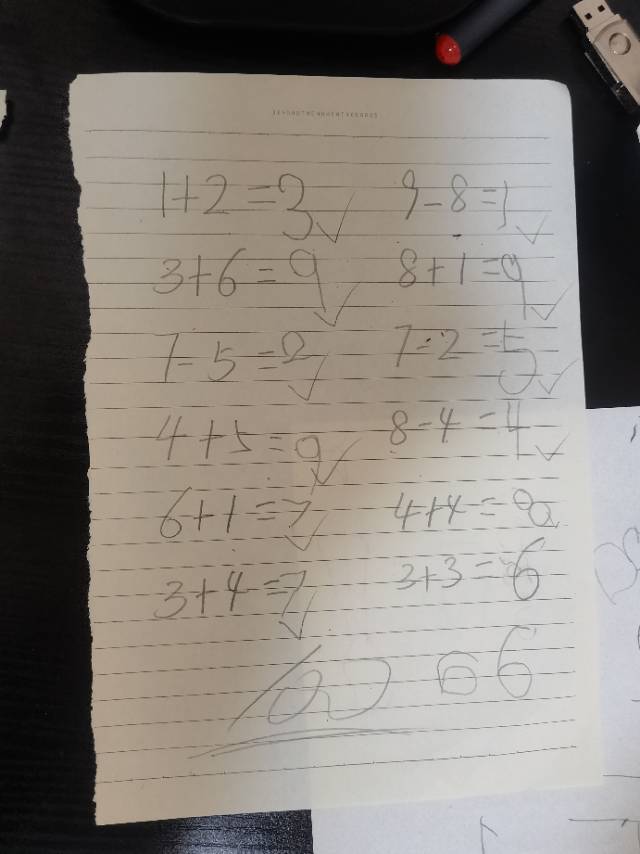 1+2=3 9-8=1
3+6=9 8+1=9
7-5=2 7-2=5
4+5=9 8-4=4
6+1=7 4+4=8
3+4=7 3+3=6
100 66